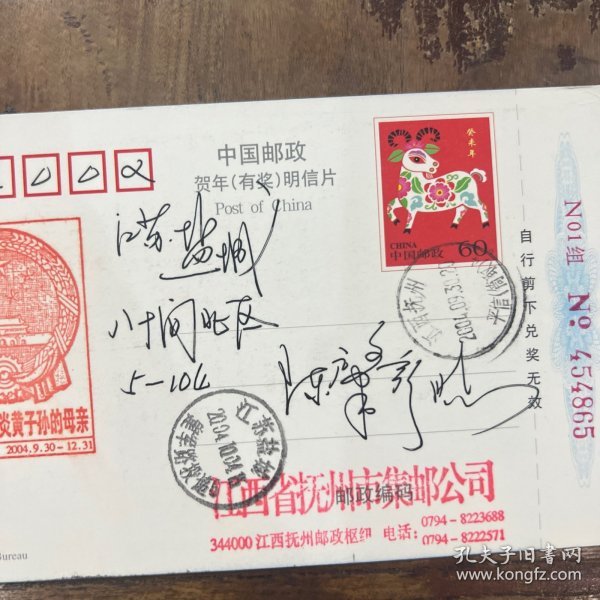 0002
中国邮政
贺年(有奖)明信片
Post of China
癸未年
CHINA
中国邮政 60
江西抚州
2004.09.30.
江苏·盐城
八十间旺区
5-104
陈
江苏盐城
2004.10.04.
炎黄子孙的母亲
2004.9.30-12.31
邮政编码
江西省抚州市集邮公司
344000 江西抚州邮政枢纽 电话: 0794-8223688
0794-8222571
No1组 No 454865
自行剪下兑奖无效
Bureau
孔夫子旧书网
www.kongfz.com